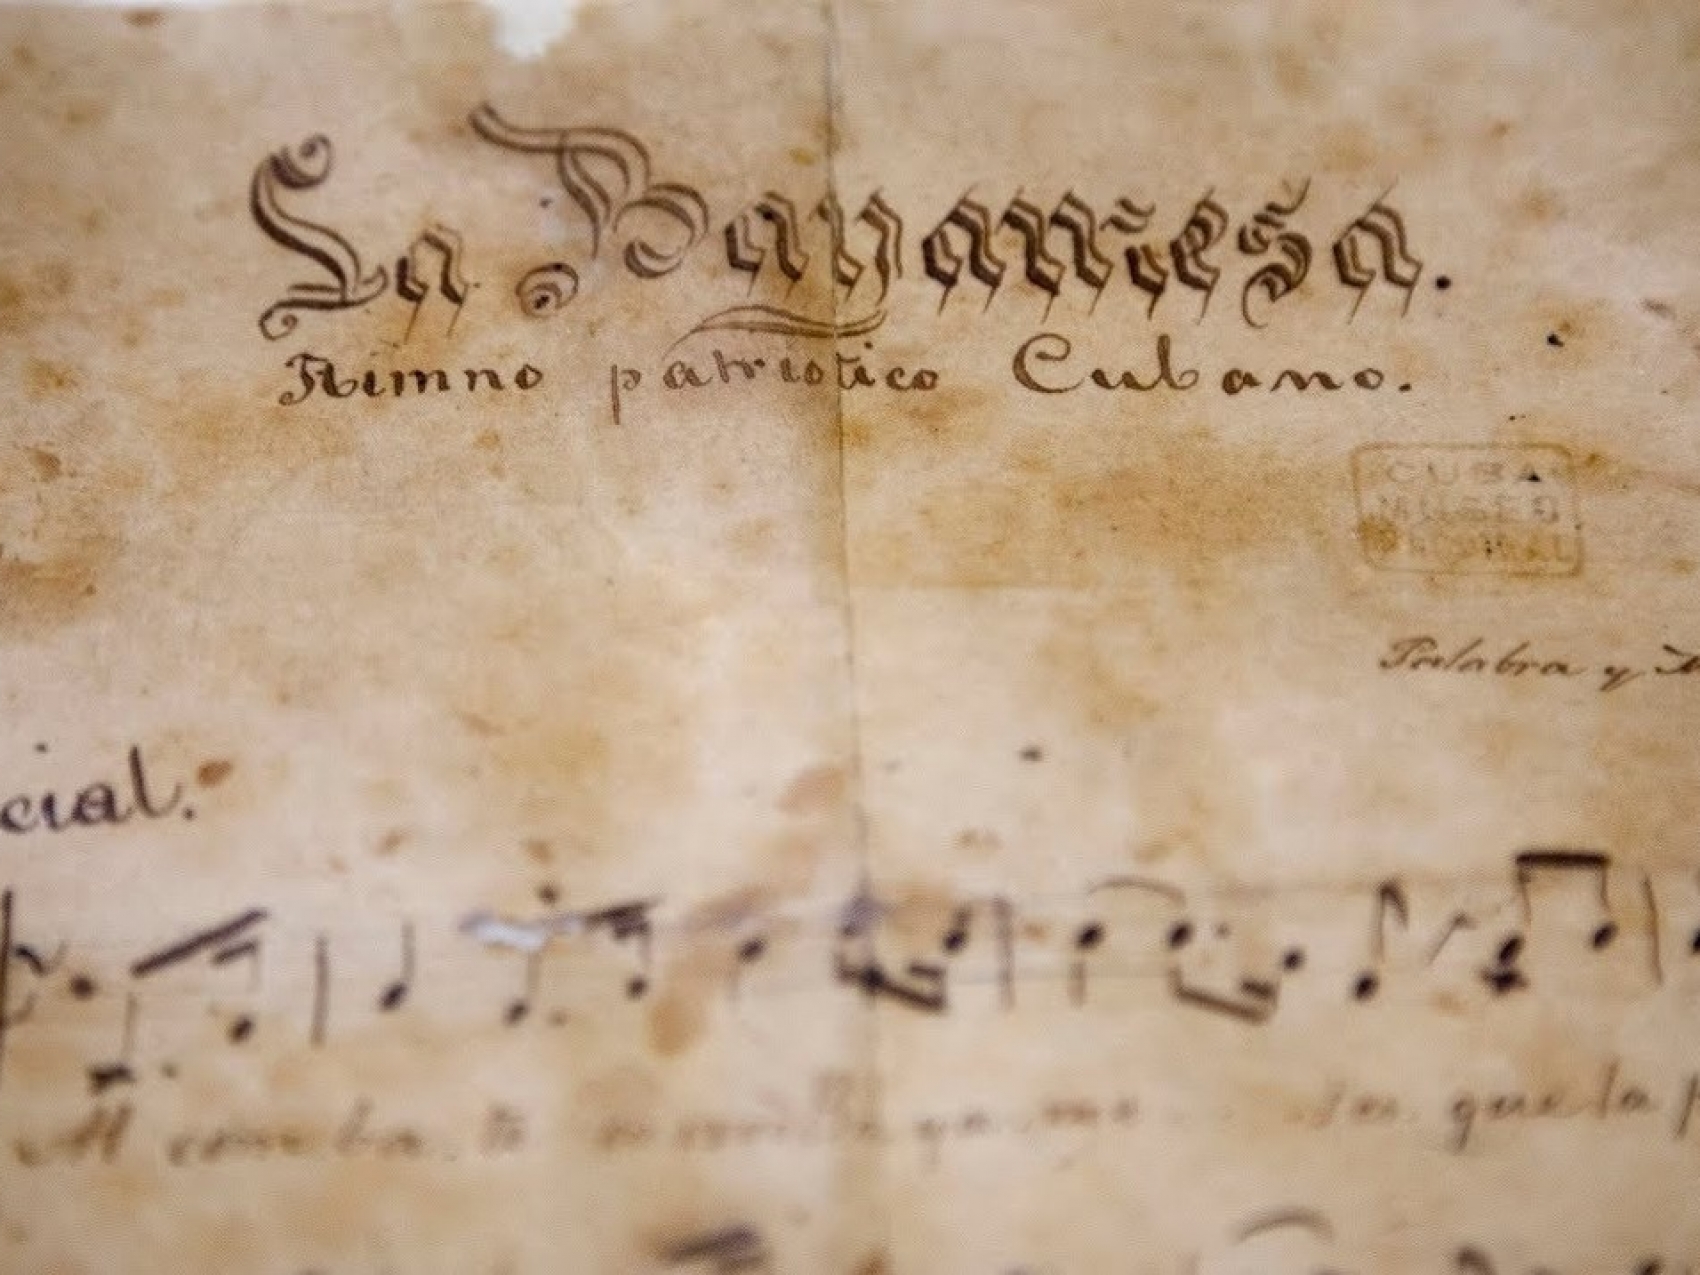 La Bayamesa.
Himno patriotico Cubano.
CUBA
MUSEO
Palabra y
cial.
Al comba te
que la